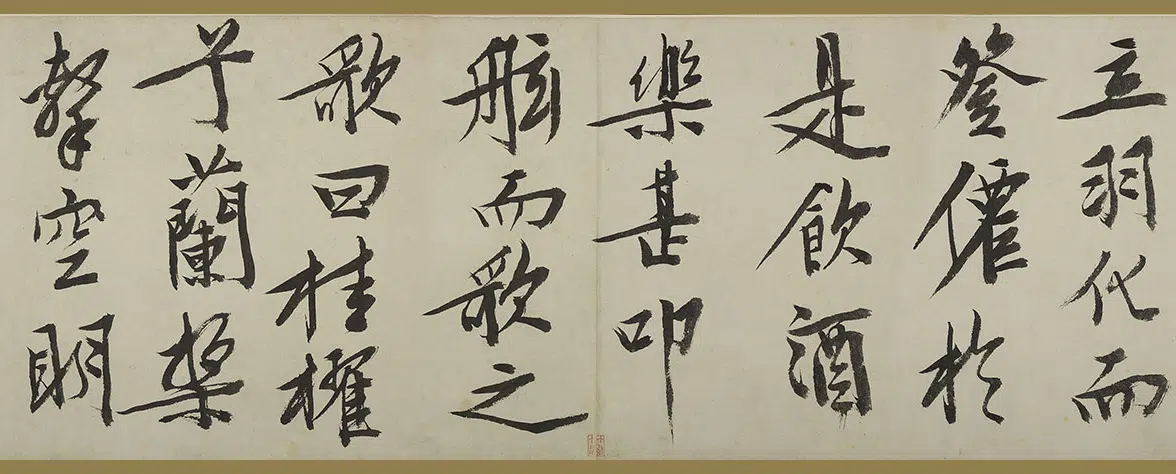 立羽化而
登僊於
是飲酒
樂甚叩
舷而歌之
歌曰桂櫂
兮蘭槳
擊空明